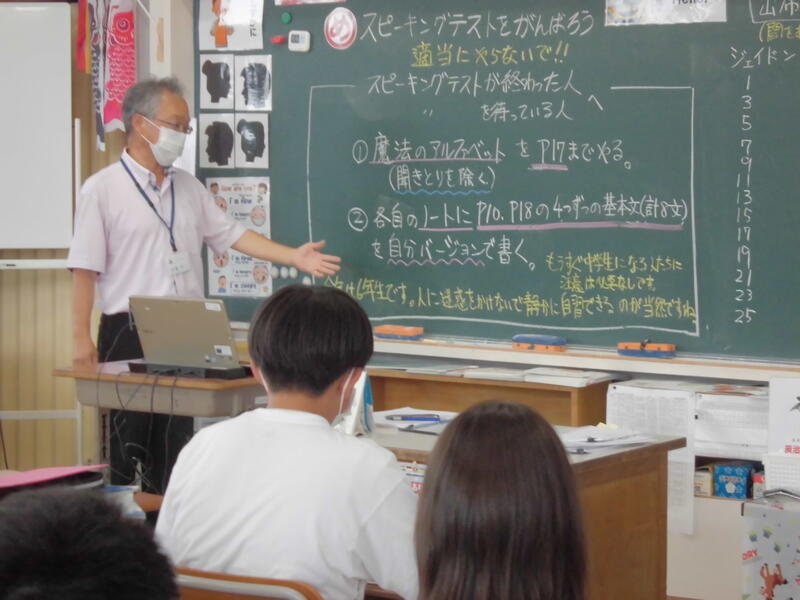 め スピーキングテストをがんばろう
適当にやらないで!!
スピーキングテストが終わった人
〃 を待っている人 へ
①魔法のアルファベットをP17までやる。
(聞きとりを除く)
②各自のノートにP10、P18の4つずつの基本文(計8文)
を自分バージョンで書く。
もうすぐ中学生になる人たちに
注意は必要なしです。
6年生です。人に迷惑をかけないで静かに自習できるのが当然ですね
ジェイドン
1
3
5
7
9
11
13
15
17
19
21
23
25